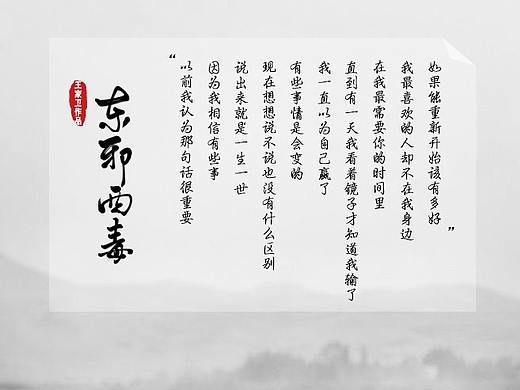 王家卫作品
东邪西毒
“以前我认为那句话很重要
因为我相信有些事
说出来就是一生一世
现在想想说不说也没有什么区别
有些事情是会变的
我一直以为自己赢了
直到有一天我看着镜子才知道我输了
在我最需要你的时间里
我最喜欢的人却不在我身边
如果能重新开始该有多好”